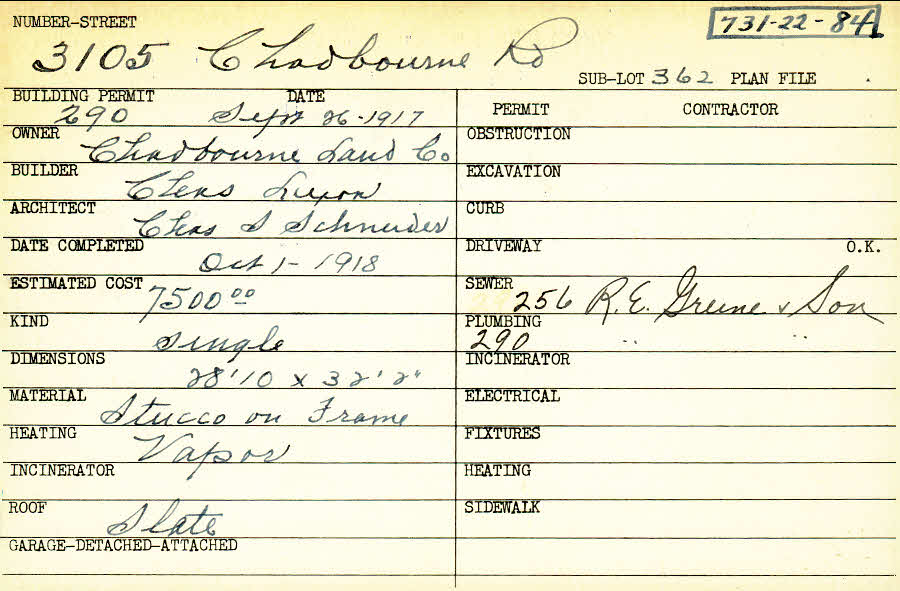 NUMBER-STREET
731-22-84
3105 Chadbourne Rd
SUB-LOT 362 PLAN FILE
BUILDING PERMIT DATE
290 Sept 26-1917
OWNER
Chadbourne Land Co
BUILDER
Chas
ARCHITECT
Chas S Schneider
DATE COMPLETED
Oct 1- 1918
ESTIMATED COST
7500 00
KIND
Single
DIMENSIONS
28'10 x 32'2"
MATERIAL
Stucco on Frame
HEATING
Vapor
INCINERATOR
ROOF
Slate
GARAGE-DETACHED-ATTACHED
PERMIT CONTRACTOR
OBSTRUCTION
EXCAVATION
CURB
DRIVEWAY O.K.
SEWER
256 R.E. Greene & Son
PLUMBING
290 " "
INCINERATOR
ELECTRICAL
FIXTURES
HEATING
SIDEWALK